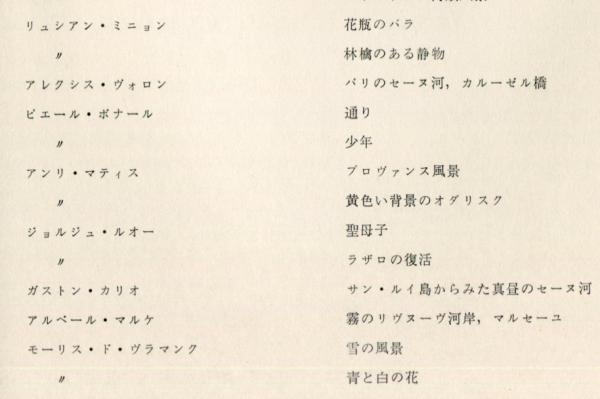 リュシアン・ミニョン 花瓶のバラ
〃 林檎のある静物
アレクシス・ヴォロン パリのセーヌ河，カルーゼル橋
ピエール・ボナール 通り
〃 少年
アンリ・マティス プロヴァンス風景
〃 黄色い背景のオダリスク
ジョルジュ・ルオー 聖母子
〃 ラザロの復活
ガストン・カリオ サン・ルイ島からみた真昼のセーヌ河
アルベール・マルケ 霧のリヴヌーヴ河岸，マルセーユ
モーリス・ド・ヴラマンク 雪の風景
〃 青と白の花